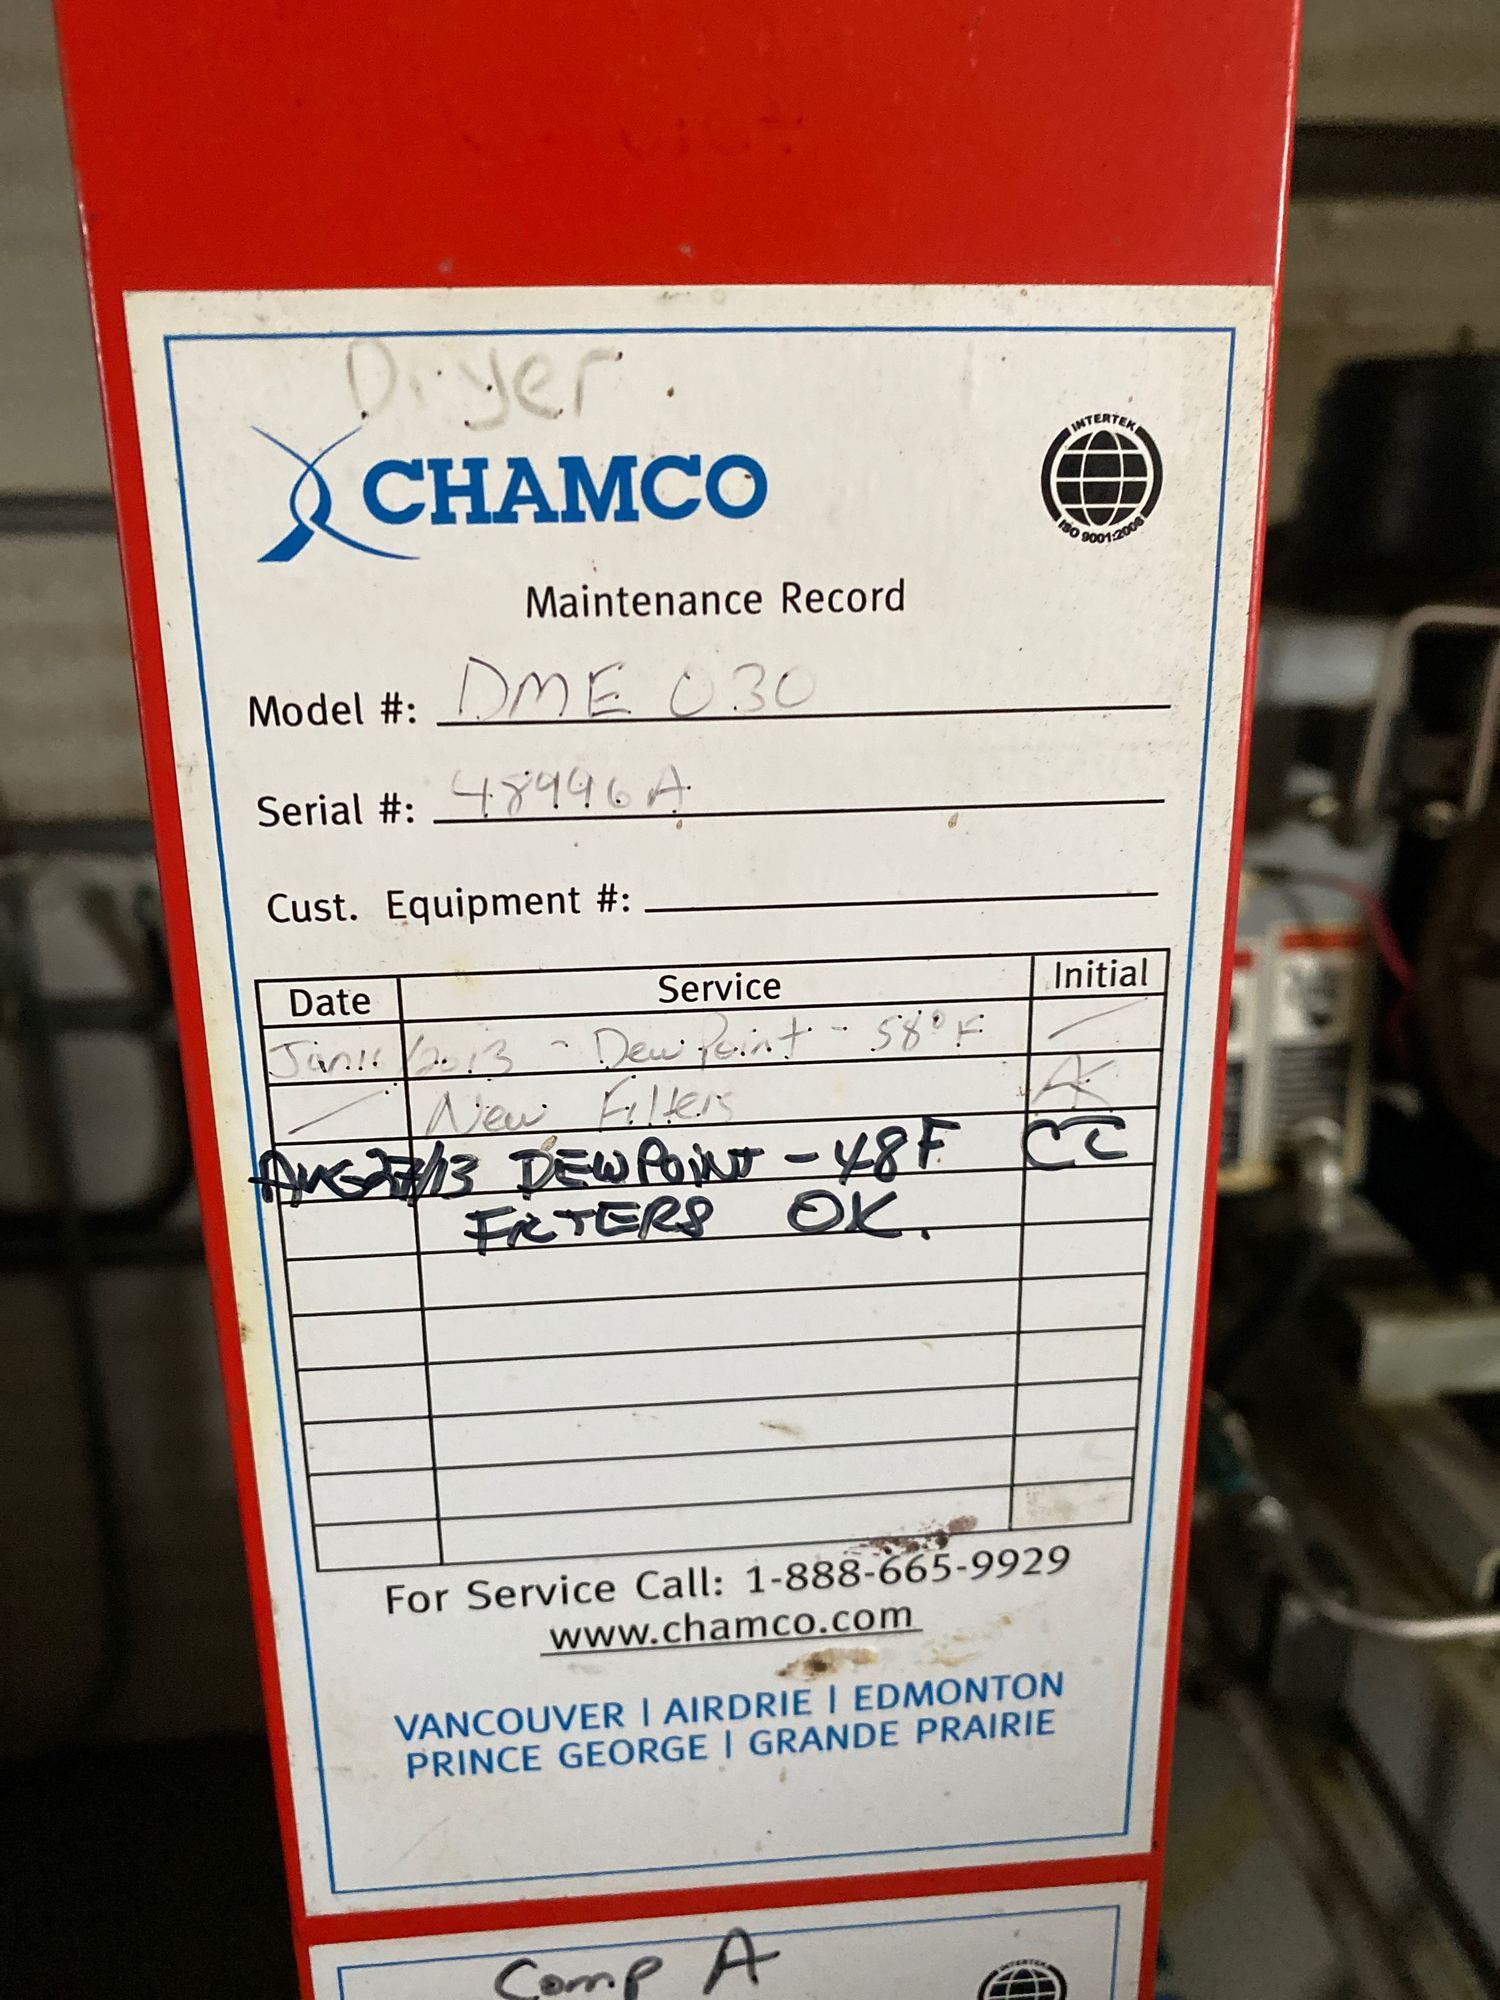 Dryer
CHAMCO
INTERTEK
ISO 9001:2008
Maintenance Record
Model #: DME 030
Serial #: 48996A
Cust. Equipment #:
Date Service Initial
Jan 16/2013 - Dew Point - 58°F
New Filters AK
AUG 27/13 DEWPOINT - 48F CC
FILTERS OK.
For Service Call: 1-888-665-9929
www.chamco.com
VANCOUVER | AIRDRIE | EDMONTON
PRINCE GEORGE | GRANDE PRAIRIE
Comp A
INTERTEK